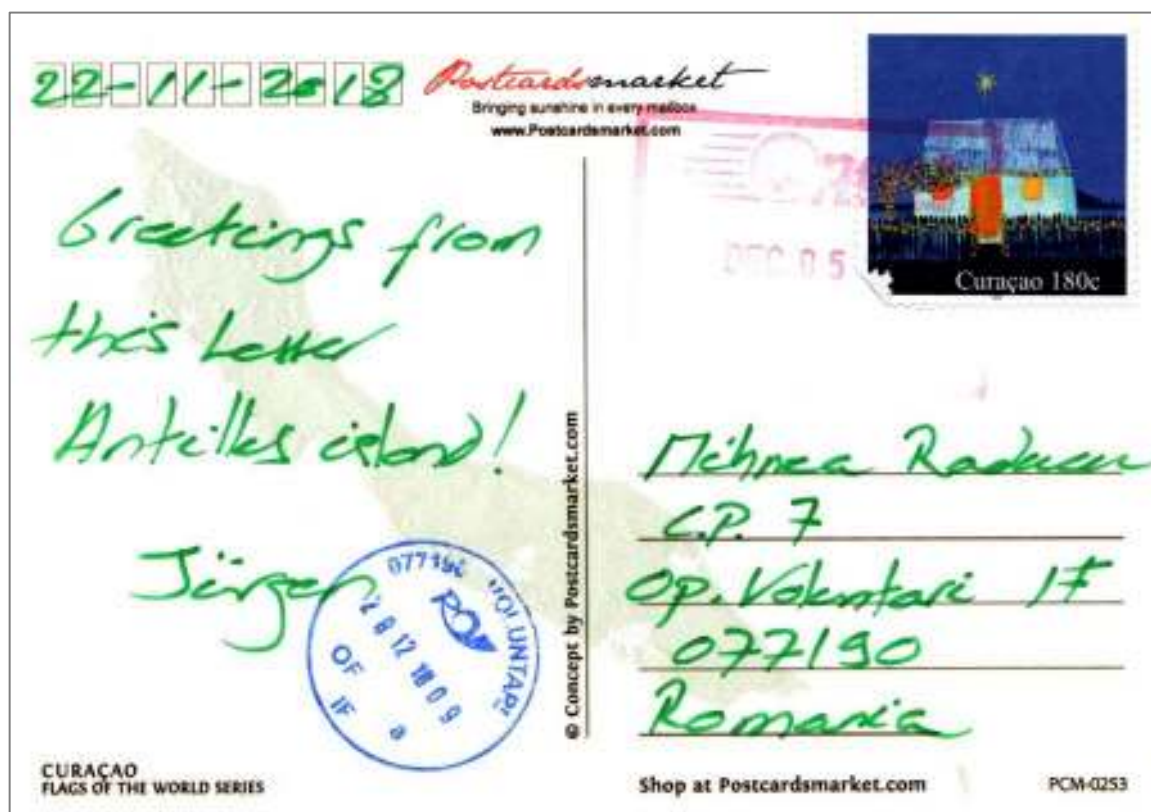 22-11-2018
Postcardsmarket
Bringing sunshine in every mailbox
www.Postcardsmarket.com
DEC 05
Curaçao 180c
Greetings from
this Lesser
Antilles island!
Jürgen
077190 VOLUNTARI
28 12 18 09
OF IF a
© Concept by Postcardsmarket.com
Mihnea Raducu
C.P. 7
Op. Voluntari IF
077190
Romania
CURAÇAO
FLAGS OF THE WORLD SERIES
Shop at Postcardsmarket.com
PCM-0253